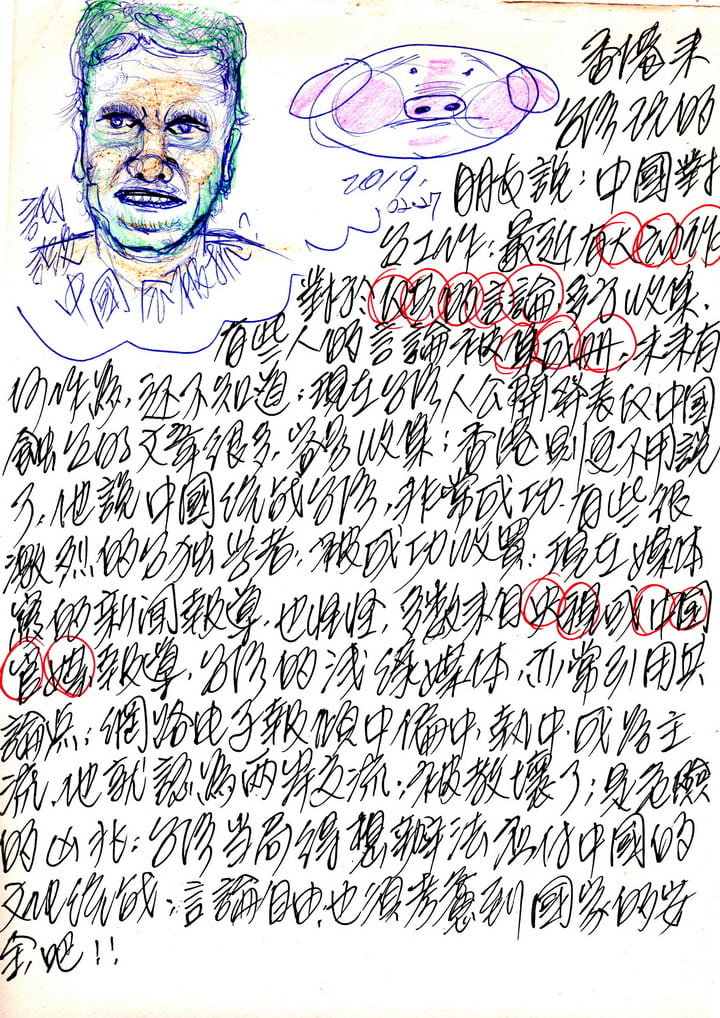 香港来
台湾玩的
2019.
02.27
朋友說:中國對
台工作,最近有大动作
對於反共的言論,多方收集,
有些人的言論被集成冊,未来有
何作為,还不知道;現在台湾人公開發表反中國
融台的文章很多,容易收集;香港則更不用說
了,他說中國統战台湾,非常成功,有些很
激烈的台独学者,被成功收買;現在媒体
寫的新闻報導,也怪怪,多数来自央視或中国
官媒報導,台湾的浅綠媒体,亦常引用其
論点;網路电子報傾中偏中,執中,成為主
流,他就認為两岸交流,被教壞了;是危險
的凶兆;台湾当局得想辦法应付中國的
文化統战;言論自由,也須考慮到國家的安
全吧!!
中國